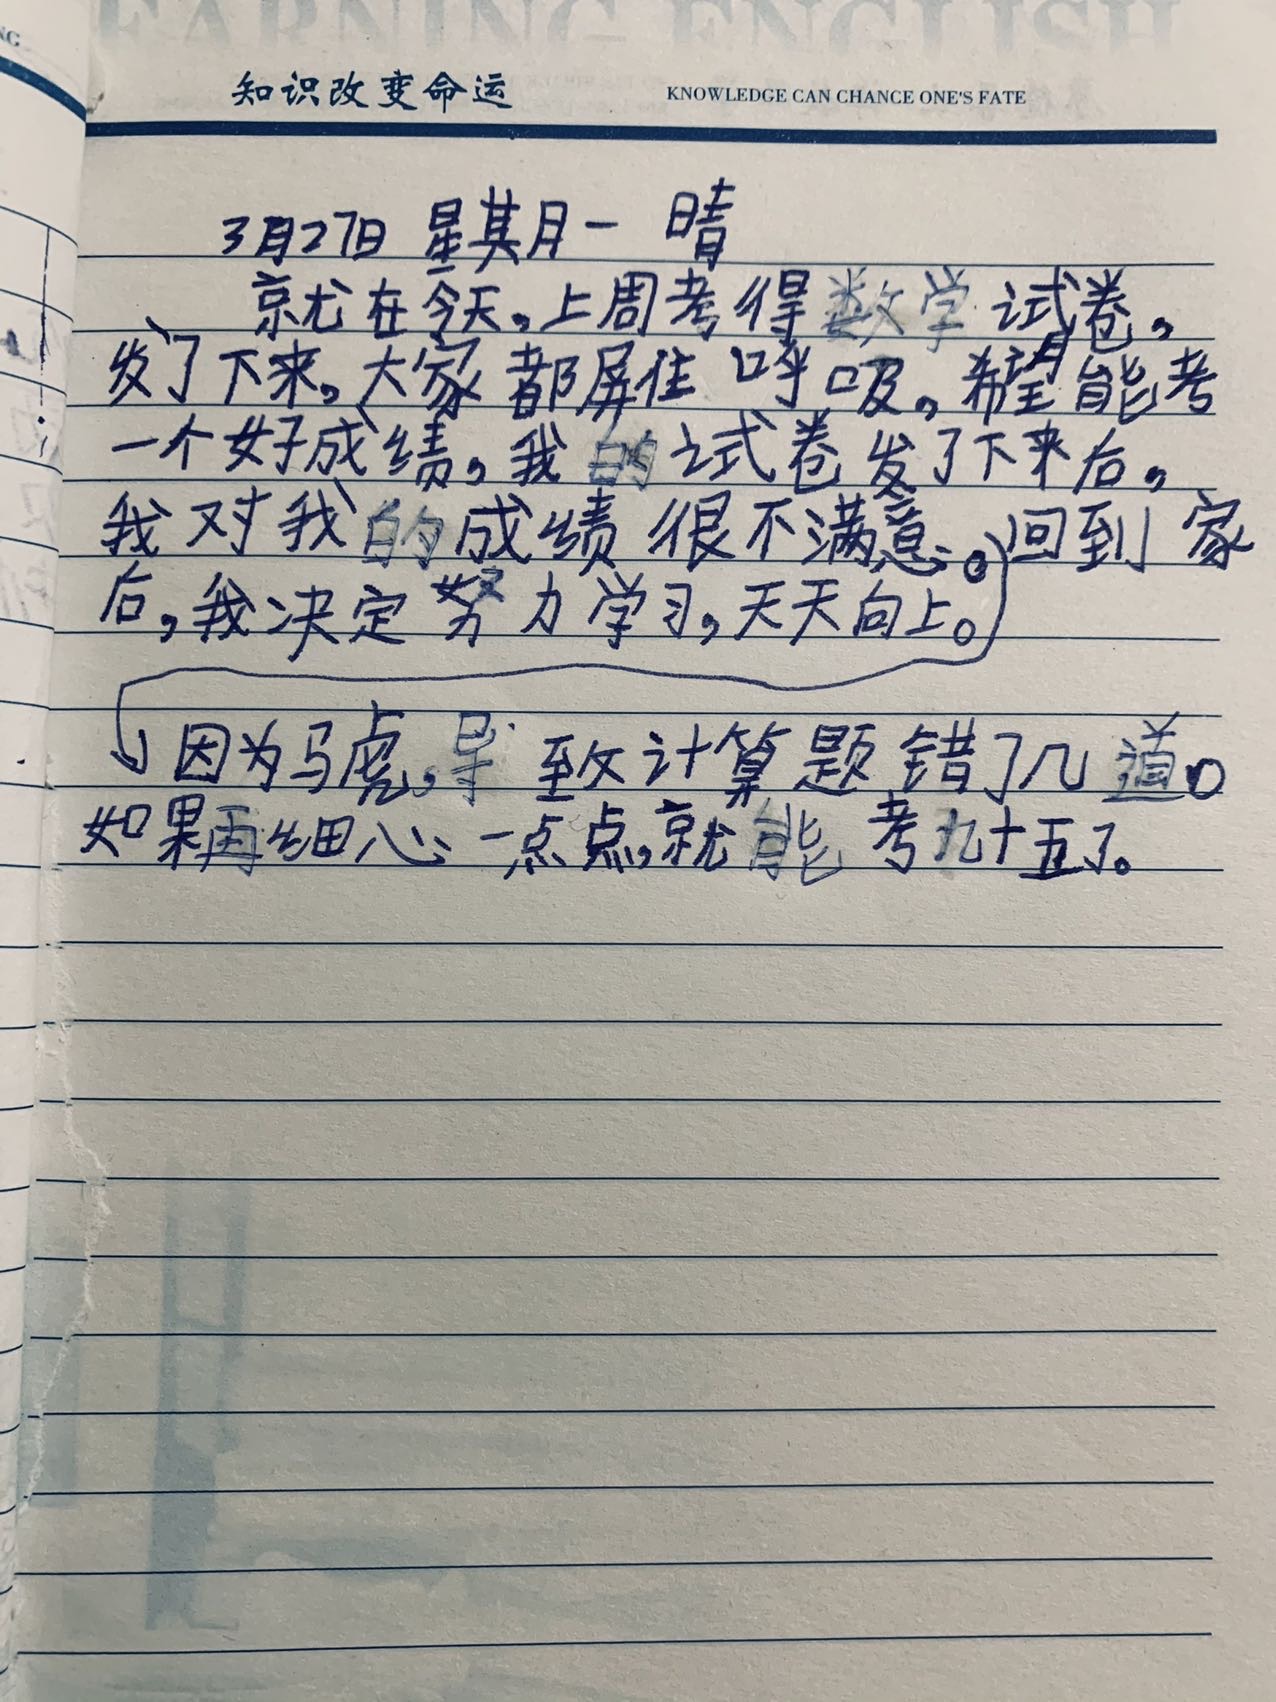 知识改变命运 KNOWLEDGE CAN CHANCE ONE'S FATE
3月27日 星期一 晴
就在今天,上周考得数学试卷,
发了下来,大家都屏住呼吸,希望能考
一个好成绩,我的试卷发了下来后,
我对我的成绩很不满意。回到家
后,我决定努力学习,天天向上。
因为马虎,导致计算题错了几道。
如果再细心一点点,就能考九十五了。